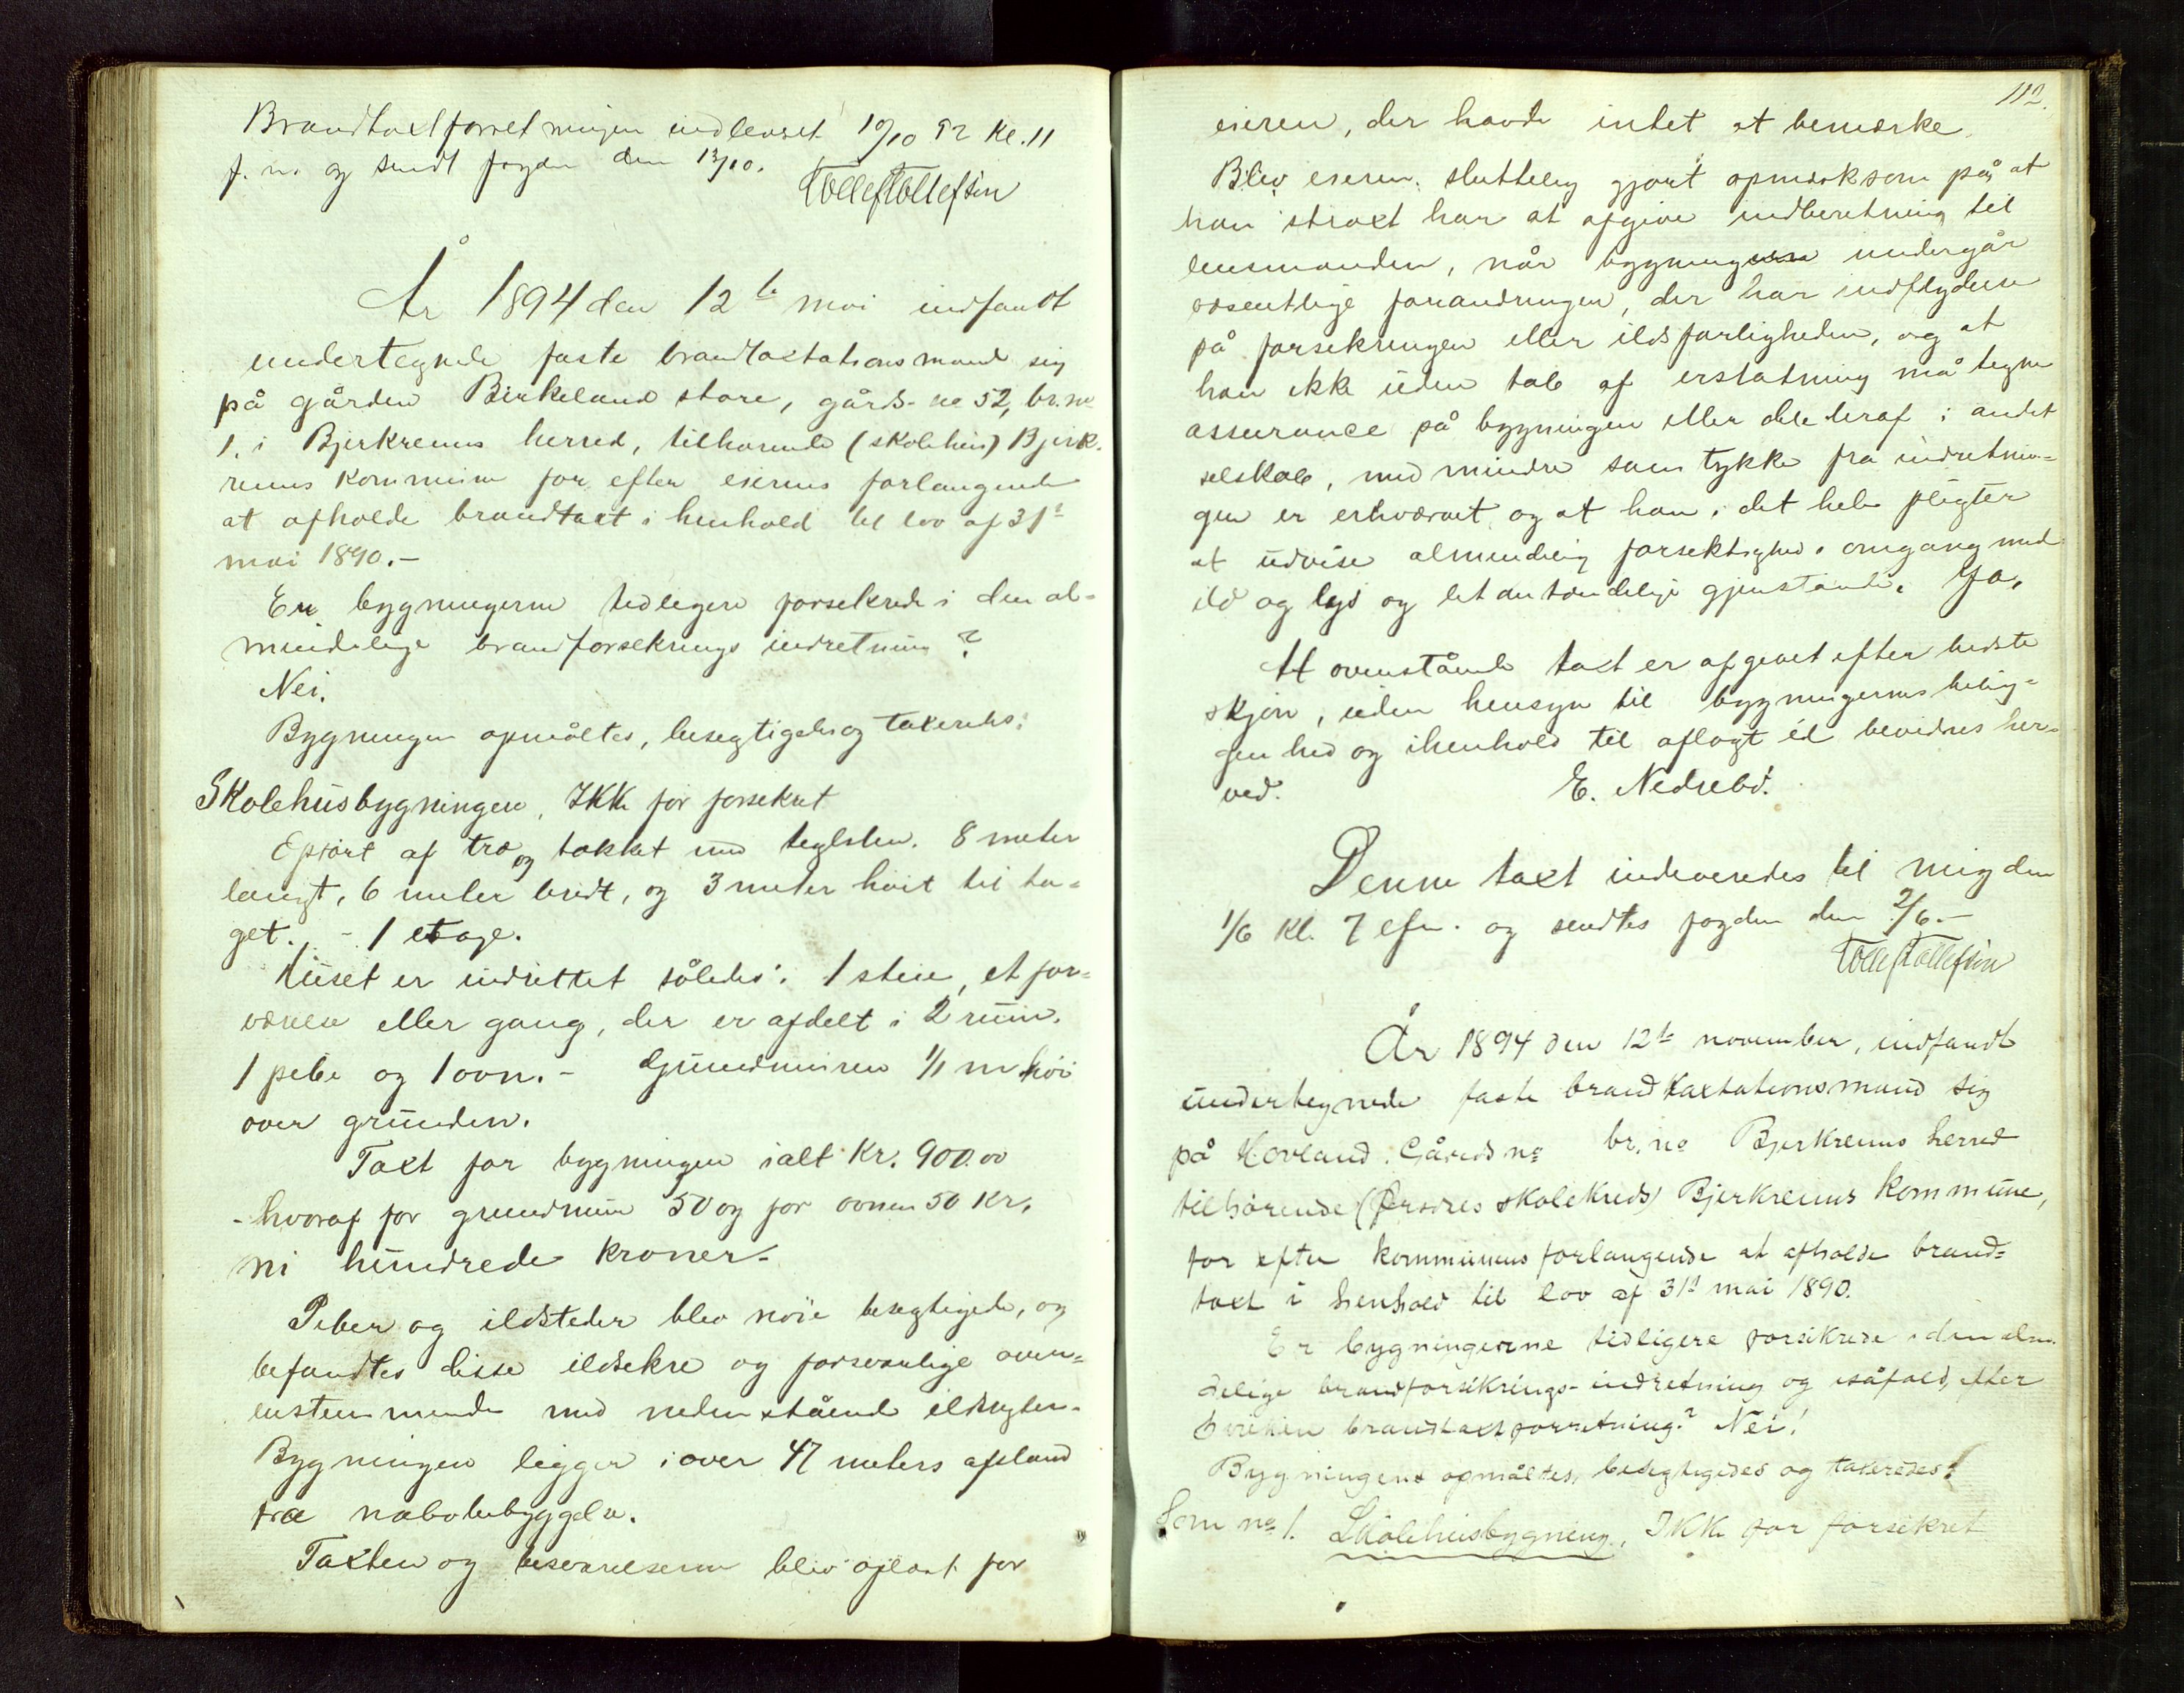 Brandtaxtforretningen indleveret 10/10 92 Kl. 11
f. m. og sendt fogden den 13/10.
Tollef Tollefsen
År 1894 den 12te mai indfandt
undertegnede faste brandtaxtationsmænd sig
på gården Birkeland store, gårds-no 52, br. no
1. i Bjerkreims herred, tilhørende (skolehus) Bjerk-
reims kommune for efter eierens forlangende
at afholde brandtaxt i henhold til lov af 31te
mai 1890.-
Er bygningerne tidligere forsikrede i den al-
mindelige brandforsikringsindretning?
Nei.
Bygningen opmåltes, besegtigedes og taxeredes:
Skolehusbygningen, Ikke før forsikret
Opført af træ og tækket med teglsten. 8 meter
langt, 6 meter bredt, og 3 meter høit til ta-
get. - 1 etage.
Huset er indrettet således: 1 stue, et for-
værelse eller gang, der er afdelt i 2 rum.
1 pibe og 1 ovn.- Grundmuren 1/1 m høi
over grunden.
Taxt for bygningen ialt Kr. 900.00
- hvoraf for grundmur 50 og for ovnen 50 Kr.
ni hundrede kroner.
Piber og ildsteder blev nøie besegtigede, og
befandtes disse ildsikre og forsvarlige over-
enstemmende med nedenstående
Bygningen ligger i over 47 meters afstand
fra nabobebyggelse.
Taxten og besvarelserne blev oplæst for
112.
eieren, der havde intet at bemærke.
Blev eieren sluttelig gjort opmærksom på, at
han straxt har at afgive indberetning til
lensmanden, når bygningerne undergår
væsentlige forandringer, der har indflydelse
på forsikringen eller ildsfarligheden, og at
han ikke uden tab af erstatning må tegne
assurance på bygningen eller dele deraf i andet
selskab, med mindre samtykke fra indretnin-
gen er erhvervet og at han i det hele pligter
at udvise almindelig forsiktighed i omgang med
ild og lys og let antændelige gjenstande. Ja.
At ovenstående taxt er afgivet efter bedste
skjøn, uden hensyn til bygningernes belig-
genhed og ihenhold til aflagt éd bevidnes her-
ved. E. Nedrebø.
Denne taxt indleveredes til mig den
1/6 Kl. 7 efm. og sendtes fogden den 2/6.-
Tollef Tollefsen
År 1894 den 12te november, indfandt
undertegnede faste brandtaxtationsmænd sig
på Hovland. Gårds no br. no Bjerkreims herred
tilhørende (Ørsdres skolekreds) Bjerkreims kommune,
for efter kommunens forlangende at afholde brand-
taxt i henhold til lov af 31te mai 1890.
Er bygningerne tidligere forsikrede i den alm.
delige brandforsikrings-indretning og isåfald, efter
hvilken brandtaxtforretning? Nei!
Bygningens opmåltes, besegtigedes og taxeredes:
Som no 1. Skolehusbygning, Ikke før forsikret